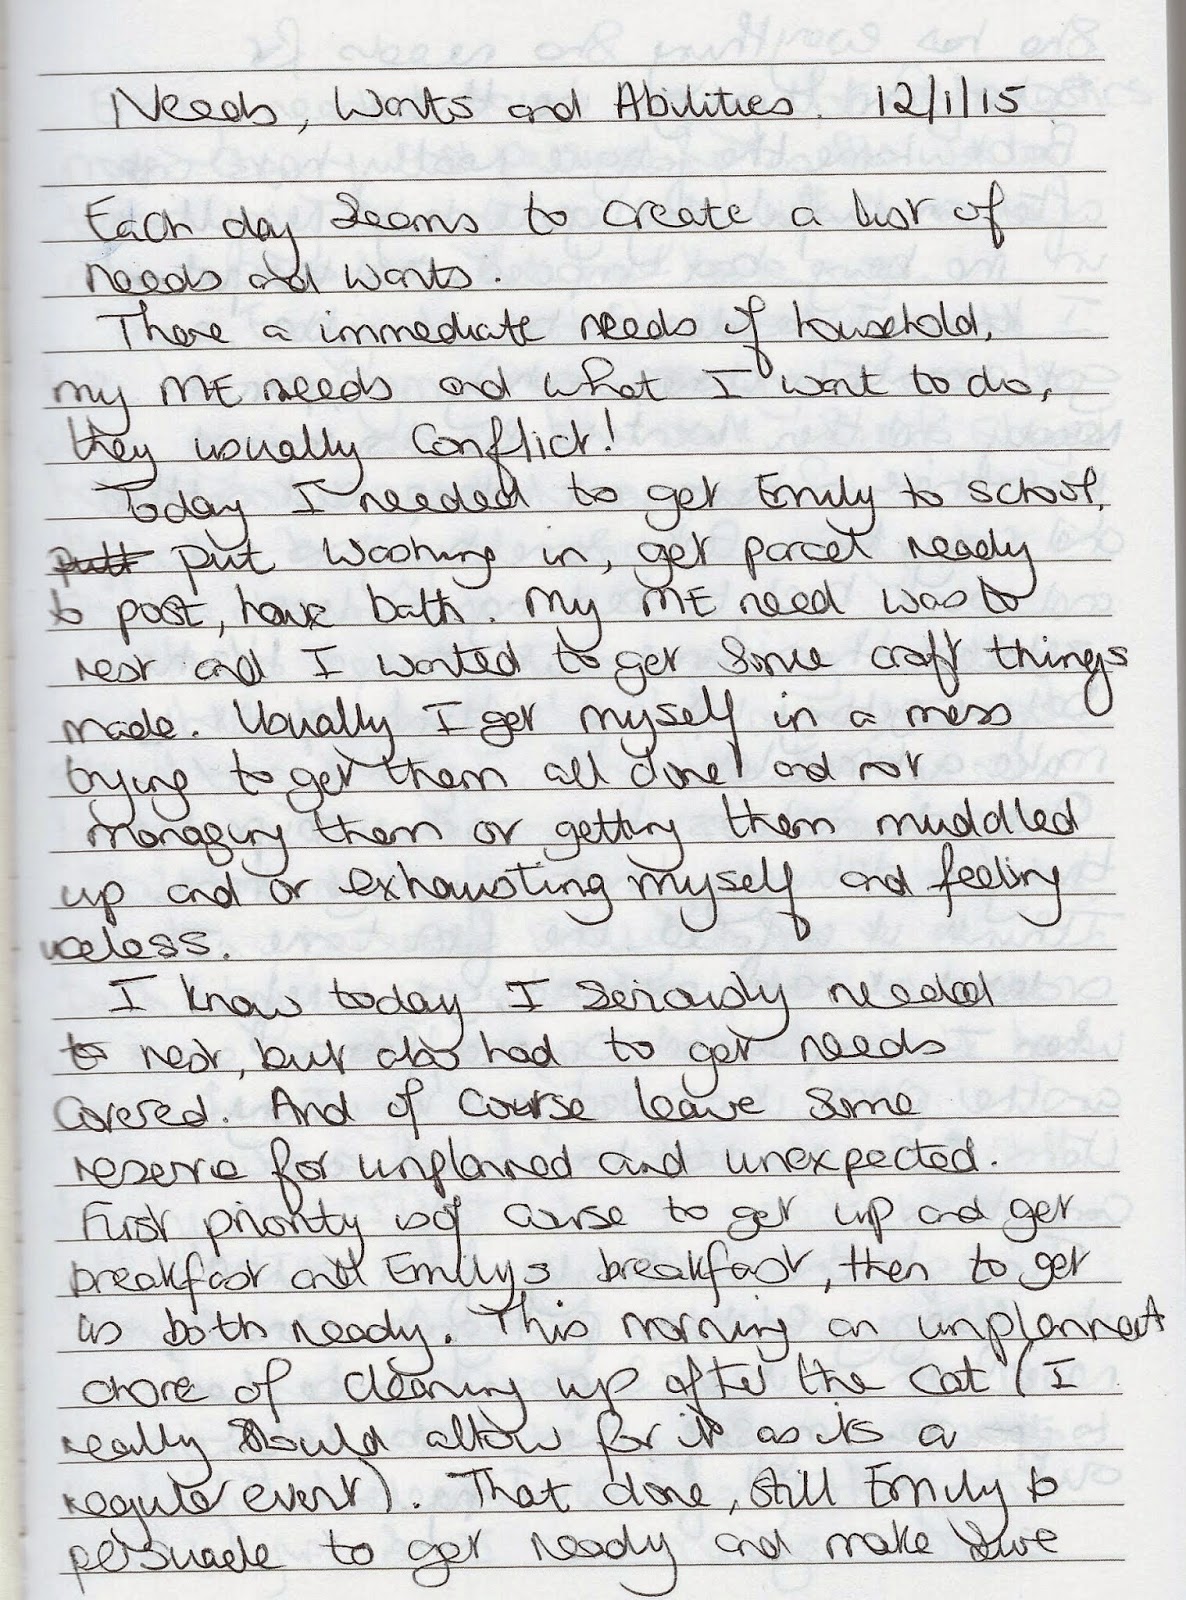 Needs, Wants and Abilities. 12/1/15
Each day seems to create a list of
needs and wants.
There a immediate needs of household,
my ME needs and what I want to do,
they usually conflict!
Today I needed to get Emily to school,
putt put washing in, get parcel ready
to post, have bath. My ME need was to
rest and I wanted to get some craft things
made. Usually I get myself in a mess
trying to get them all done and not
managing them or getting them muddled
up and or exhausting myself and feeling
useless.
I know today I seriously needed
to rest, but also had to get needs
covered. And of course leave some
reserve for unplanned and unexpected.
First priority is of course to get up and get
breakfast and Emilys breakfast, then to get
us both ready. This morning an unplanned
chore of cleaning up after the cat (I
really should allow for it as its a
regular event). That done, still Emily to
persuade to get ready and make sure